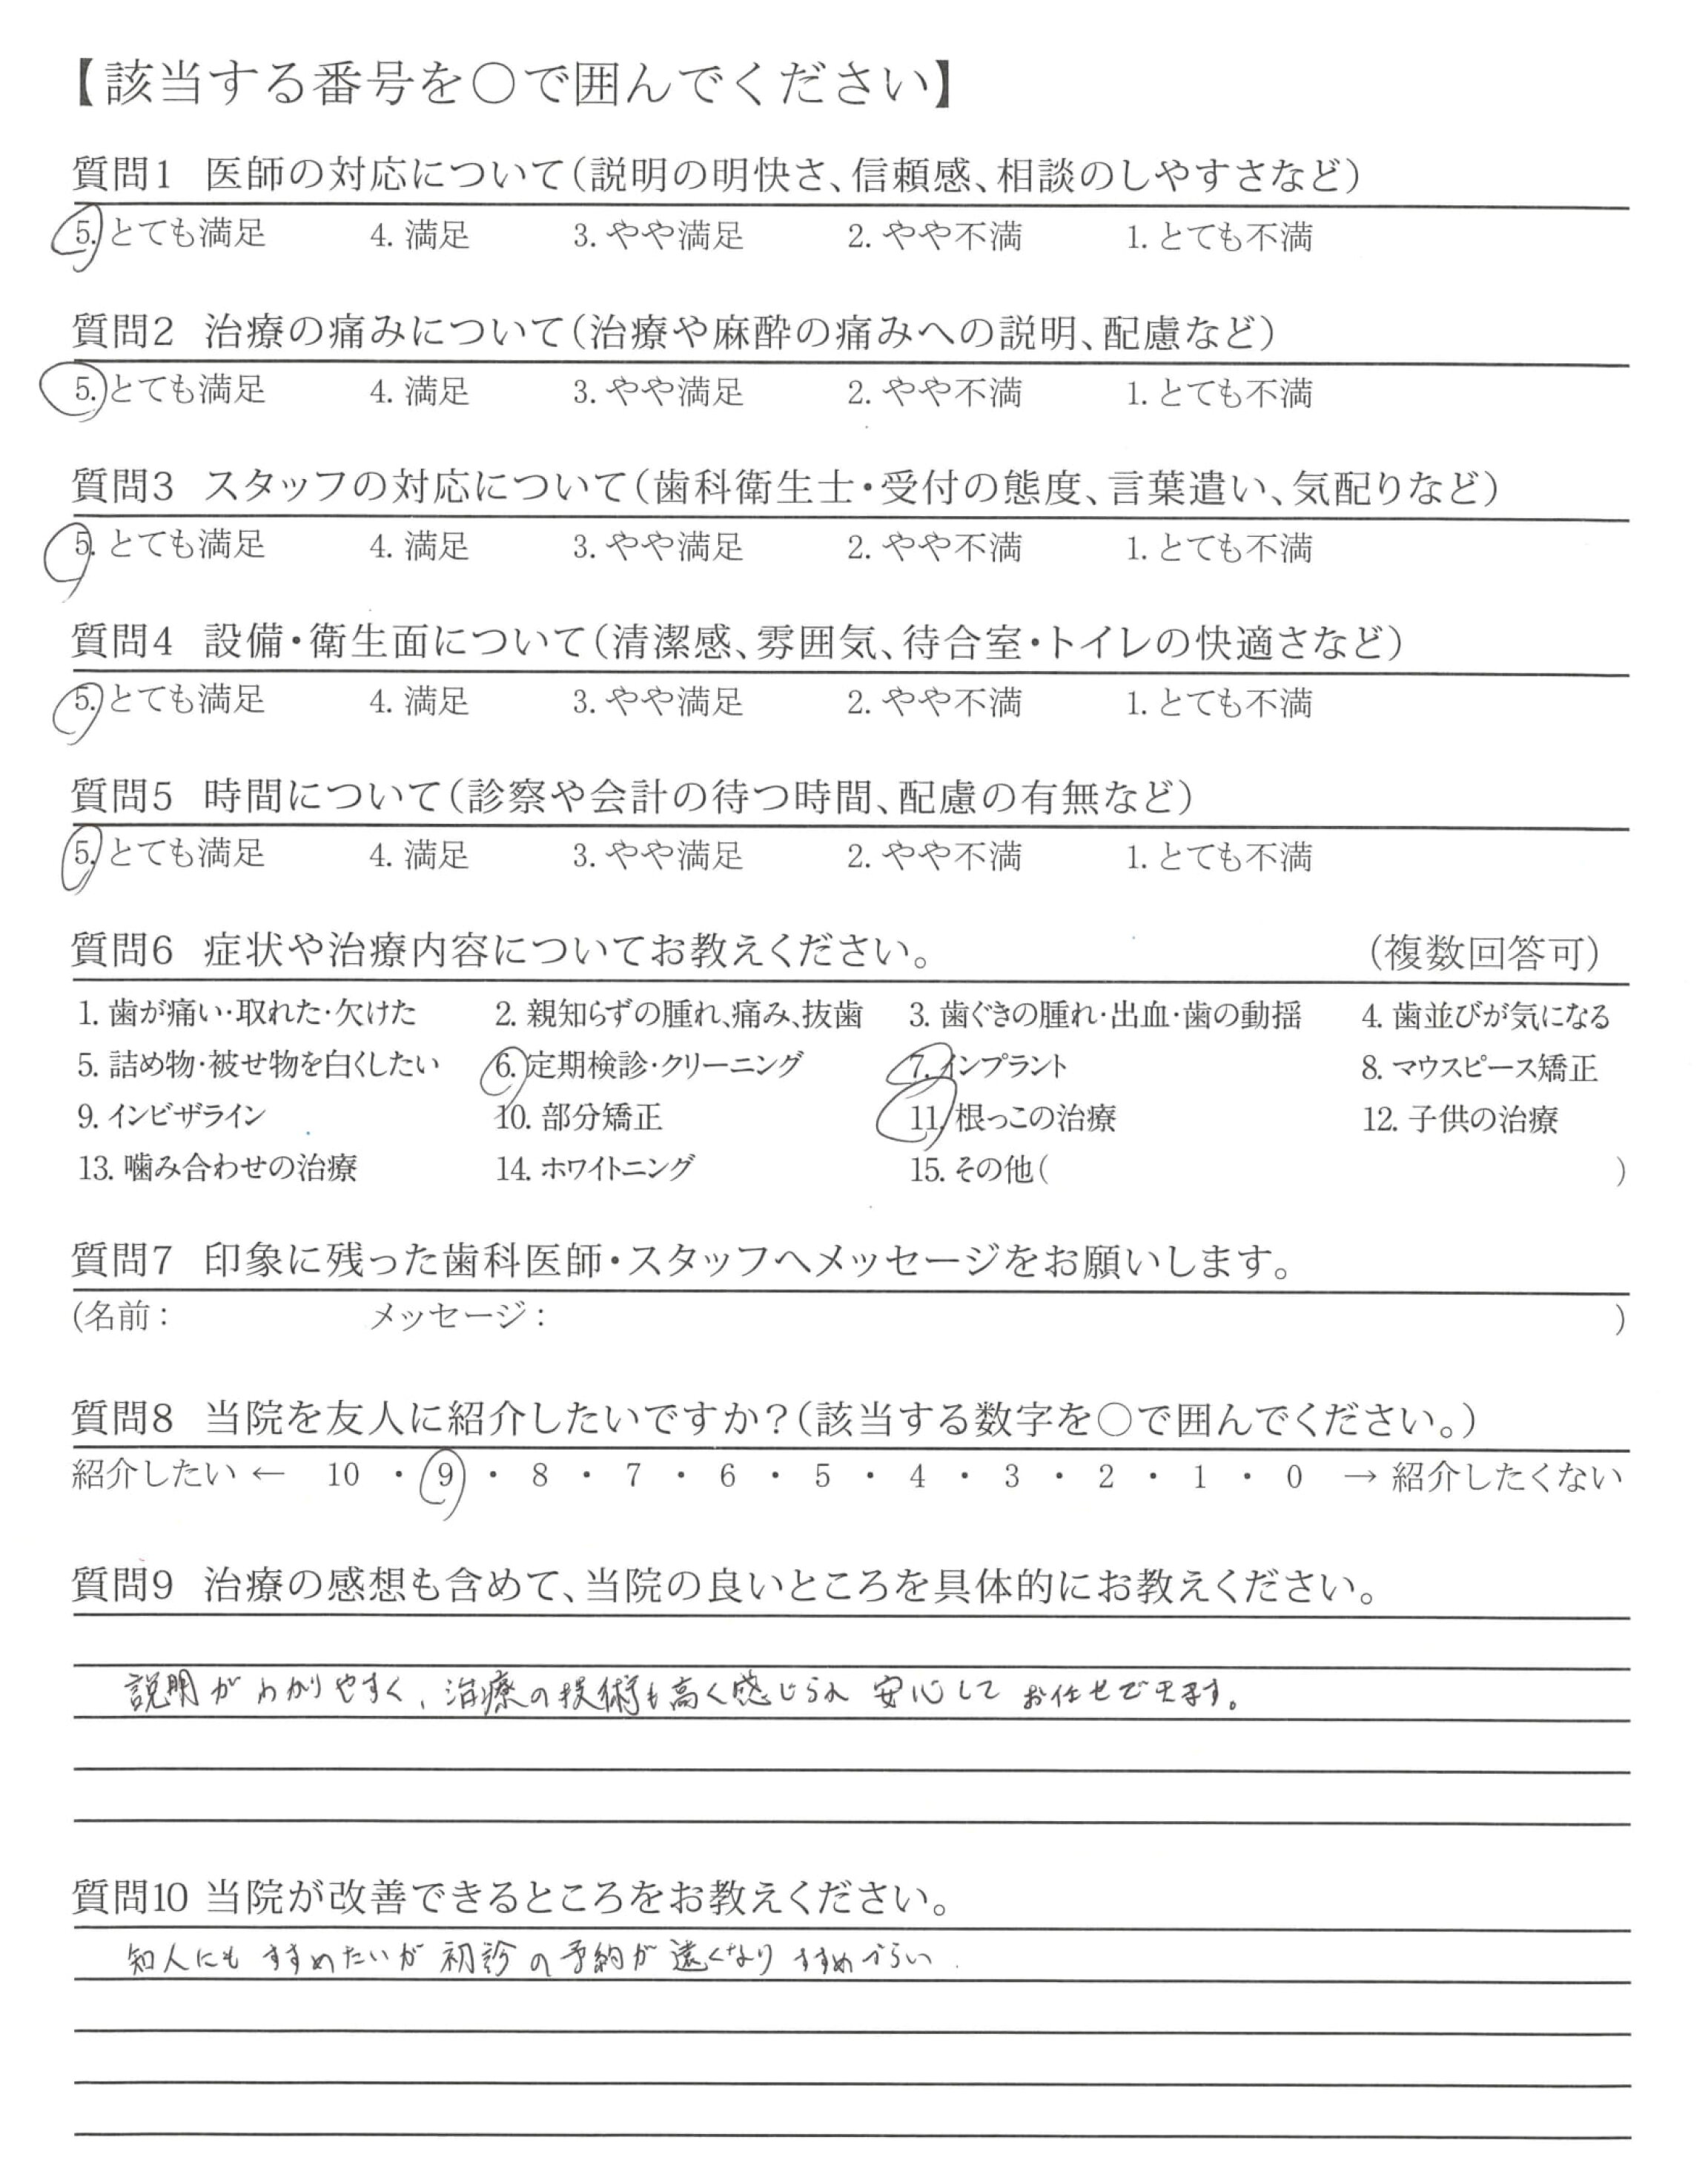 【該当する番号を○で囲んでください】
質問1 医師の対応について(説明の明快さ、信頼感、相談のしやすさなど)
5. とても満足 4. 満足 3. やや満足 2. やや不満 1. とても不満
質問2 治療の痛みについて(治療や麻酔の痛みへの説明、配慮など)
5. とても満足 4. 満足 3. やや満足 2. やや不満 1. とても不満
質問3 スタッフの対応について(歯科衛生士・受付の態度、言葉遣い、気配りなど)
5. とても満足 4. 満足 3. やや満足 2. やや不満 1. とても不満
質問4 設備・衛生面について(清潔感、雰囲気、待合室・トイレの快適さなど)
5. とても満足 4. 満足 3. やや満足 2. やや不満 1. とても不満
質問5 時間について(診察や会計の待つ時間、配慮の有無など)
5. とても満足 4. 満足 3. やや満足 2. やや不満 1. とても不満
質問6 症状や治療内容についてお教えください。 (複数回答可)
1. 歯が痛い・取れた・欠けた 2. 親知らずの腫れ、痛み、抜歯 3. 歯ぐきの腫れ・出血・歯の動揺 4. 歯並びが気になる
5. 詰め物・被せ物を白くしたい 6. 定期検診・クリーニング 7. インプラント 8. マウスピース矯正
9. インビザライン 10. 部分矯正 11. 根っこの治療 12. 子供の治療
13. 噛み合わせの治療 14. ホワイトニング 15. その他( )
質問7 印象に残った歯科医師・スタッフへメッセージをお願いします。
(名前: メッセージ: )
質問8 当院を友人に紹介したいですか?(該当する数字を○で囲んでください。)
紹介したい ← 10 ・ 9 ・ 8 ・ 7 ・ 6 ・ 5 ・ 4 ・ 3 ・ 2 ・ 1 ・ 0 → 紹介したくない
質問9 治療の感想も含めて、当院の良いところを具体的にお教えください。
説明がわかりやすく、治療の技術も高く感じられ 安心して お任せできます。
質問10 当院が改善できるところをお教えください。
知人にも すすめたいが 初診の予約が 遠くなり すすめづらい